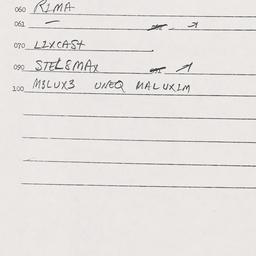 060 RIMA
061 —
070 LIXCAST
090 STELSMAX
100 M3LUX3 UNEQ MALUXIM